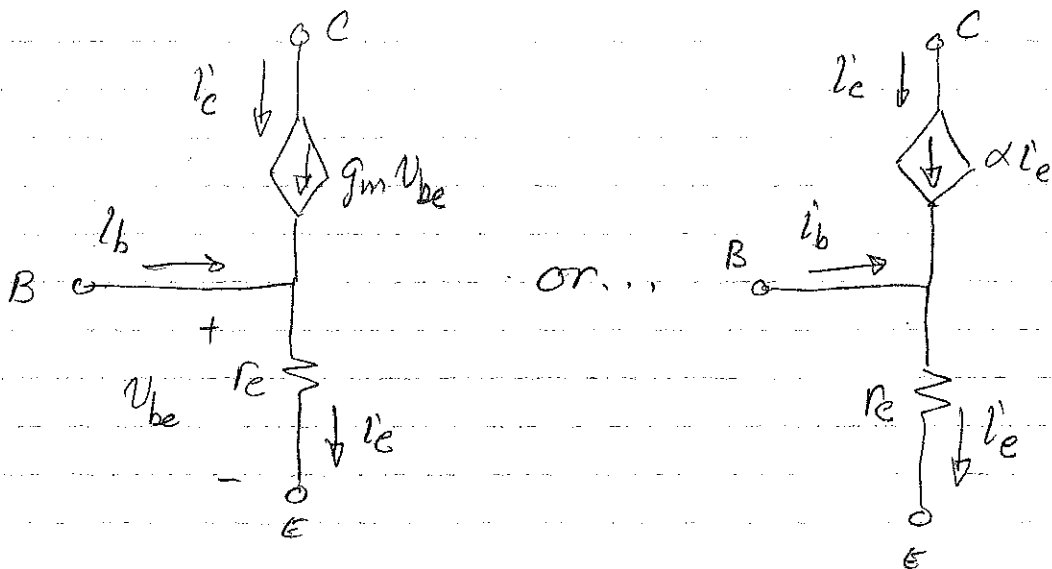 C
i_c
g_m v_be
i_b
B
+
r_e
v_be
i_e
-
E
or...
C
i_c
α i_e
i_b
B
r_e
i_e
E